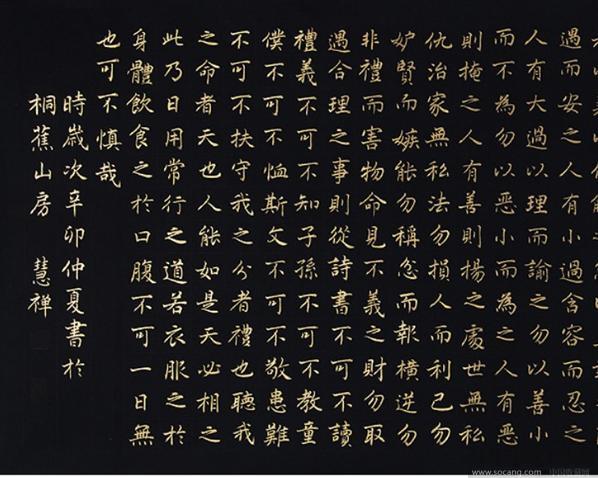 過而安之人有小過含容而忍之
人有大過以理而諭之勿以善小
而不為勿以惡小而為之人有惡
則掩之人有善則揚之處世無私
仇治家無私法勿損人而利己勿
妒賢而嫉能勿稱忿而報橫逆勿
非禮而害物命見不義之財勿取
遇合理之事則從詩書不可不讀
禮義不可不知子孫不可不教童
僕不可不恤斯文不可不敬患難
不可不扶守我之分者禮也聽我
之命者天也人能如是天必相之
此乃日用常行之道若衣服之於
身體飲食之於口腹不可一日無
也可不慎哉
時歲次辛卯仲夏書於
桐蕉山房 慧禅
www.socang.com 中国收藏网